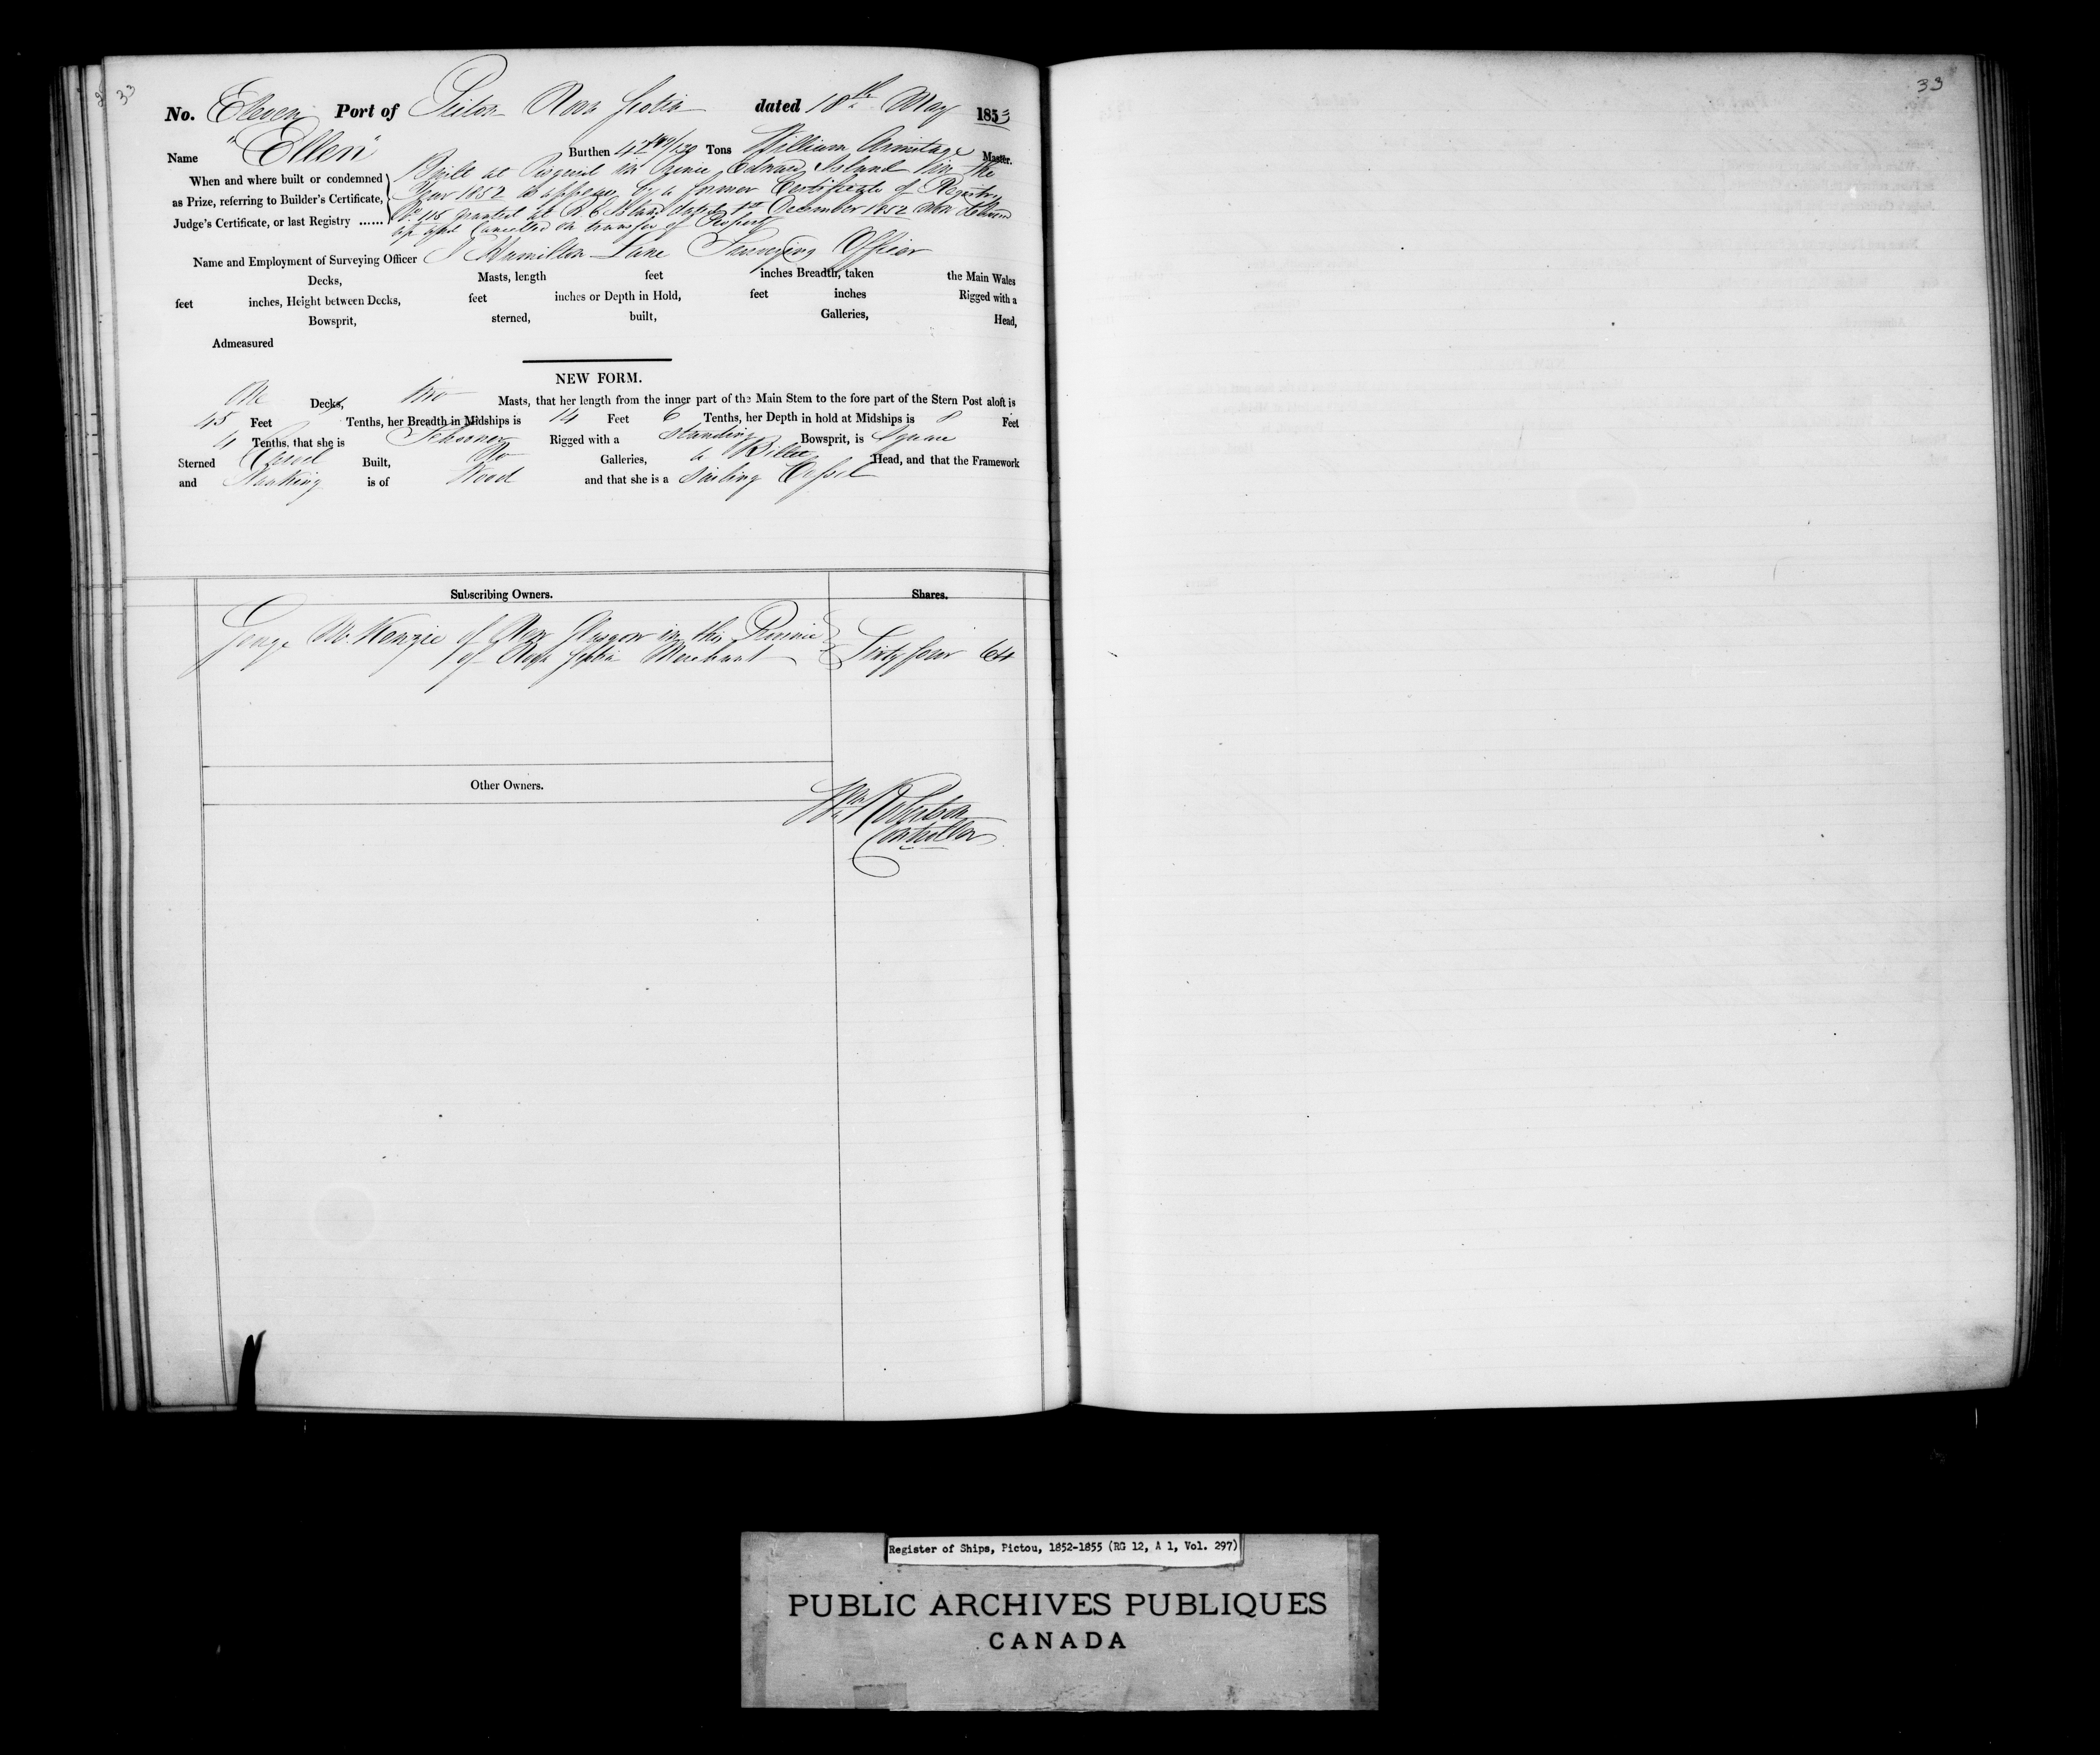 33
No. Eleven Port of Pictou Nova Scotia dated 18th May 1853
Name "Ellen" Burthen 42 Tons William Armitage Master.
When and where built or condemned as Prize, referring to Builder's Certificate, Judge's Certificate, or last Registry ......
Built at in Prince Edward Island in the
Year 1852 as appears by a former Certificate of Registry
No. 118 granted at P. E. Island dated 1st December 1852 now delivered
up and Cancelled on transfer of Property
Name and Employment of Surveying Officer J Hamilton Lane Surveying Officer
Decks, Masts, length feet inches Breadth, taken the Main Wales
feet inches, Height between Decks, feet inches or Depth in Hold, feet inches Rigged with a
Bowsprit, sterned, built, Galleries, Head,
Admeasured
NEW FORM.
One Decks, two Masts, that her length from the inner part of the Main Stem to the fore part of the Stern Post aloft is
45 Feet Tenths, her Breadth in Midships is 14 Feet 6 Tenths, her Depth in hold at Midships is 8 Feet
4 Tenths, that she is Schooner Rigged with a standing Bowsprit, is Square
Sterned Carvel Built, No Galleries, a Billet Head, and that the Framework
and Planking is of Wood and that she is a Sailing Vessel
Subscribing Owners. Shares.
George McKenzie of New Glasgow in this Province
of Nova Scotia Merchant Sixty four 64
Other Owners.
Wm Robertson
Controller
33
Register of Ships, Pictou, 1852-1855 (RG 12, A 1, Vol. 297)
PUBLIC ARCHIVES PUBLIQUES
CANADA